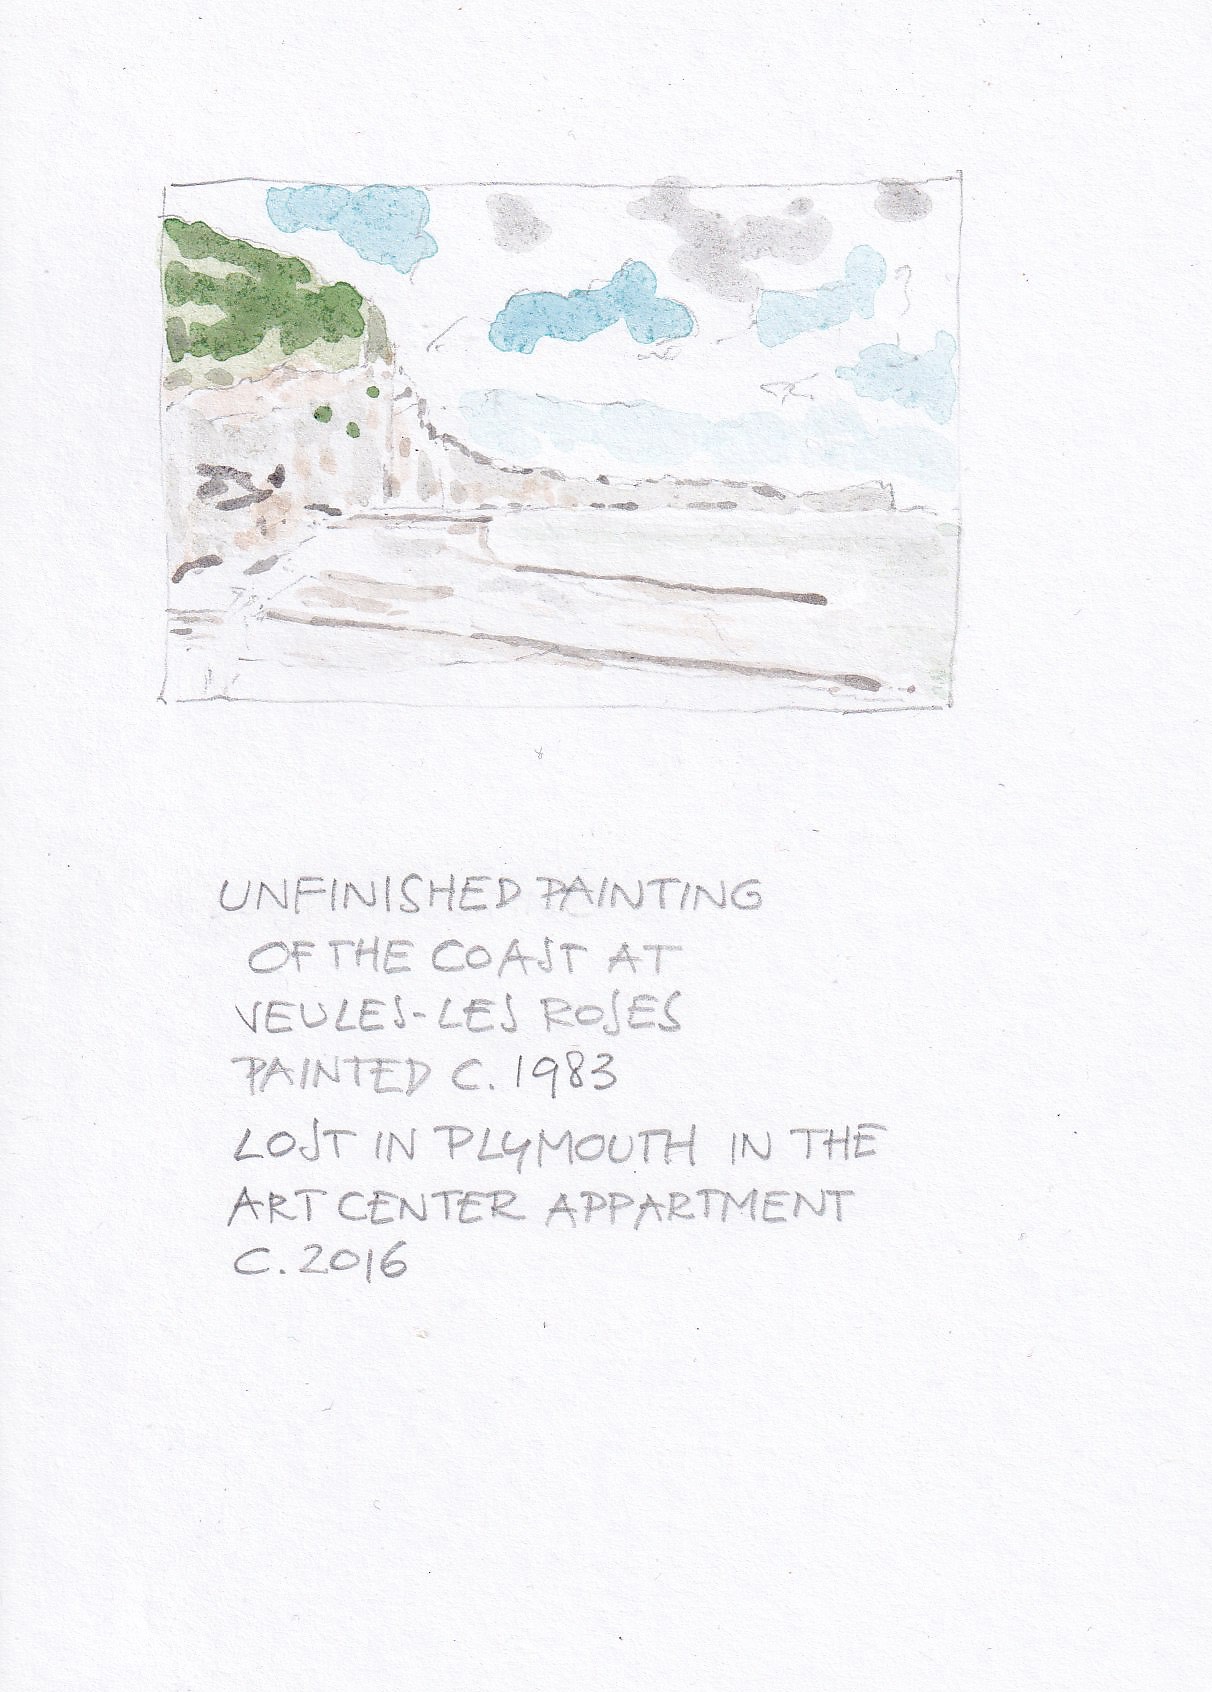 UNFINISHED PAINTING
OF THE COAST AT
VEULES-LES ROSES
PAINTED C. 1983
LOST IN PLYMOUTH IN THE
ART CENTER APPARTMENT
C. 2016